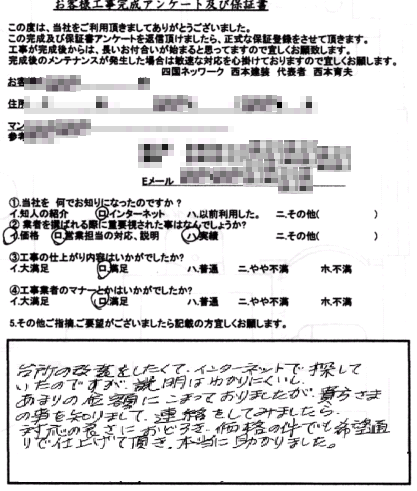 お客様工事完成アンケート及び保証書
この度は、当社をご利用頂きましてありがとうございました。
この完成及び保証書アンケートを返信頂けましたら、正式な保証登録をさせて頂きます。
工事が完成後からは、長いお付合いが始まると思ってますので宜しくお願致します。
完成後のメンテナンスが発生した場合は敏速な対応を心掛けておりますので宜しくお願いします。
四国ネッワーク 西本建装 代表者 西本育夫
お客
住所
マン
参考
Eメール
①.当社を 何でお知りになったのですか?
イ.知人の紹介 ロ.インターネット ハ.以前利用した。 ニ.その他( )
② 業者を選ばれる際に重要視された事はなんでしょうか?
イ.価格 ロ.営業担当の対応、説明 ハ.実績 ニ.その他( )
③工事の仕上がり内容はいかがでしたか?
イ.大満足 ロ.満足 ハ.普通 ニ.やや不満 ホ.不満
④工事業者のマナーとかはいかがでしたか?
イ.大満足 ロ.満足 ハ.普通 ニ.やや不満 ホ.不満
5.その他ご指摘、ご要望がございましたら記載の方宜しくお願します。
台所の改装をしたくて、インターネットで探して
いたのですが、説明はわかりにくいし、
あまりの金額にこまっておりましたが、貴方さま
の事を知りまして、連絡をしてみましたら、
対応の良さにおどろき、価格の件でも希望通
りで仕上げて頂き、本当に助かりました。